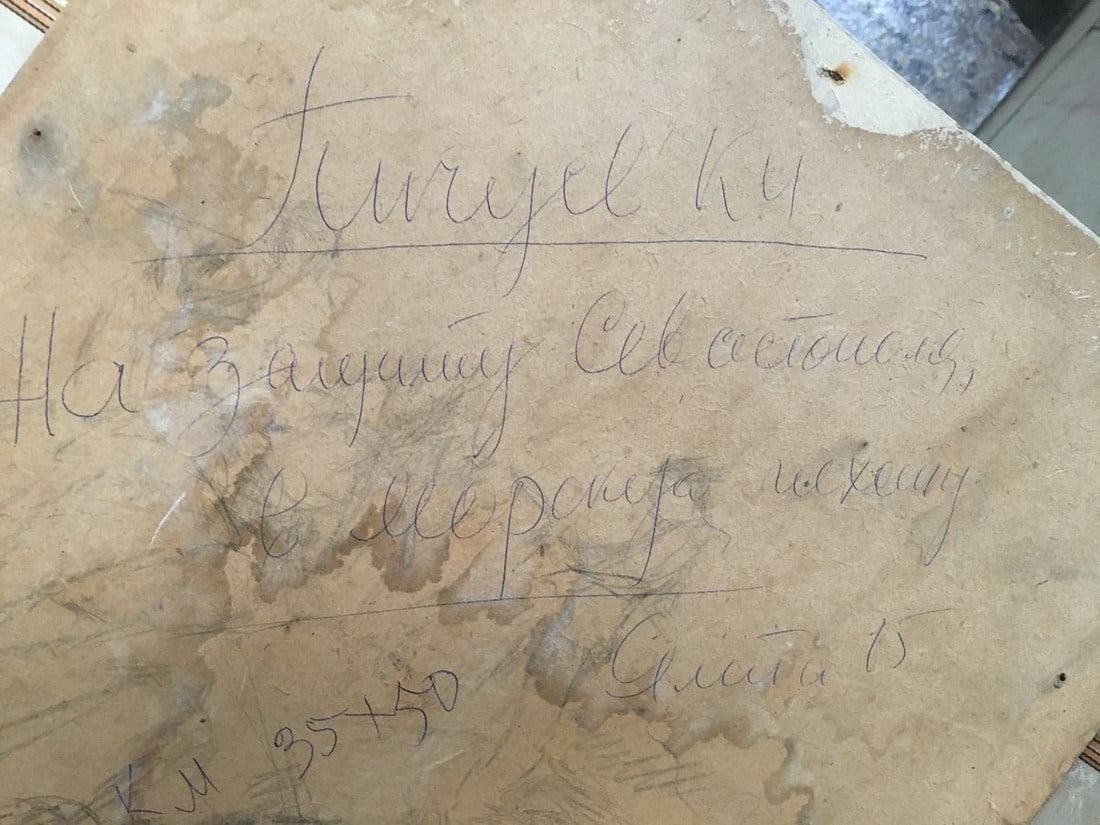 Пичуев КЧ
На защиту Севастополя,
в морскую пехоту
Ялта 15
КМ 35х50